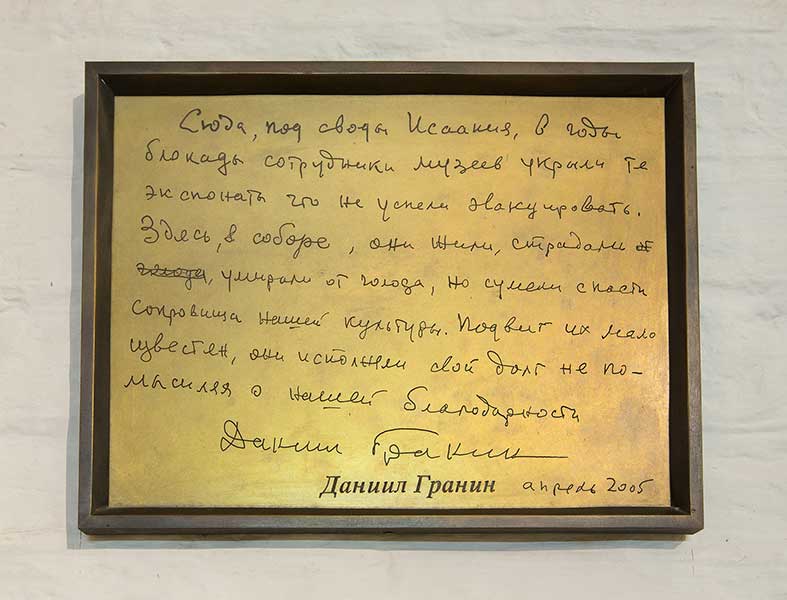 Сюда, под своды Исаакия, в годы
блокады сотрудники музеев укрыли те
экспонаты что не успели эвакуировать.
Здесь, в соборе, они жили, страдали от
голода, умирали от голода, но сумели спасти
сокровища нашей культуры. Подвиг их мало
известен, они исполнили свой долг не по-
мысляя о нашей благодарности
Даниил Гранин
Даниил Гранин апрель 2005